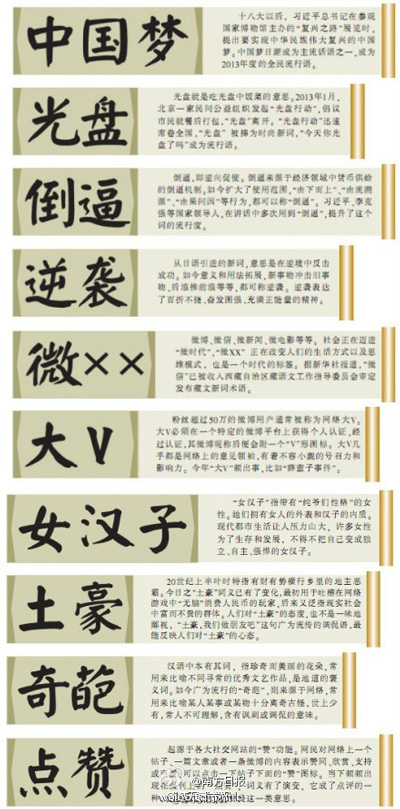 中国梦
十八大以后，习近平总书记在参观
国家博物馆主办的“复兴之路”展览时，
提出要实现中华民族伟大复兴的中国
梦。中国梦日渐成为主流话语之一，成为
2013年度的全民流行语。
光盘
光盘就是吃光盘中饭菜的意思。2013年1月，
北京一家民间公益组织发起“光盘行动”，倡议
市民就餐后打包，“光盘”离开。“光盘行动”迅速
席卷全国，“光盘”被捧为时尚新词，“今天你光
盘了吗”成为流行语。
倒逼
倒逼，即逆向促使。倒逼来源于经济领域中货币供给
的倒逼机制，如今扩大了使用范围，“由下而上”、“由流溯
源”、“由果问因”等行为，都可以称“倒逼”。习近平、李克
强等国家领导人，在讲话中多次用到“倒逼”，提升了这个
词的流行度。
逆袭
从日语引进的新词，意思是在逆境中反击
成功。如今意义和用法拓展，新事物冲击旧事
物，后浪推前浪等等，都可称逆袭。逆袭表达
了百折不挠，奋发图强，充满正能量的精神。
微××
微博、微信、微新闻、微电影等等。社会正在迈进
“微时代”，“微XX”正在改变人们的生活方式以及思
维模式，也是一个时代的标签。据新华社报道，“微
信”已被收入西藏自治区藏语文工作指导委员会审定
发布藏文新词术语。
大V
粉丝超过50万的微博用户通常被称为网络大V。
大V必须在一个特定的微博平台上获得个人认证，经
过认证，其微博昵称后便会附一个“V”形图标。大V几
乎都是网络上的意见领袖，有着不容小觑的号召力和
影响力。今年“大V”频出事，比如“薛蛮子事件”。
女汉子
“女汉子”指带有“纯爷们性格”的女
性。她们拥有女人的外表和汉子的内质。
现代都市生活让人压力山大，许多女性
为了生存和发展，不得不把自己变成独
立、自主、强悍的女汉子。
土豪
20世纪上半叶时特指有财有势横行乡里的地主恶
霸。今日之“土豪”词义已有了变化，最初用于吐槽在网络
游戏中“无脑”消费人民币的玩家，后来又泛指现实社会
中富而不贵的群体。人们对“土豪”的态度，也不是一味地
鄙视，“土豪，我们做朋友吧”这句广为流传的调侃语，最
能反映人们对“土豪”的心态。
奇葩
汉语中本有其词，指珍奇而美丽的花朵，常
用来比喻不同寻常的优秀文艺作品，是地道的褒
义词。如今广为流行的“奇葩”，则来源于网络，常
用来比喻某人某事或某物十分离奇古怪，世上少
有，常人不可理解，含有讽刺或调侃的意味。
点赞
起源于各大社交网站的“赞”功能。网民对网络上一个
帖子、一篇文章或者一条微博的内容表示赞同、欣赏、支持